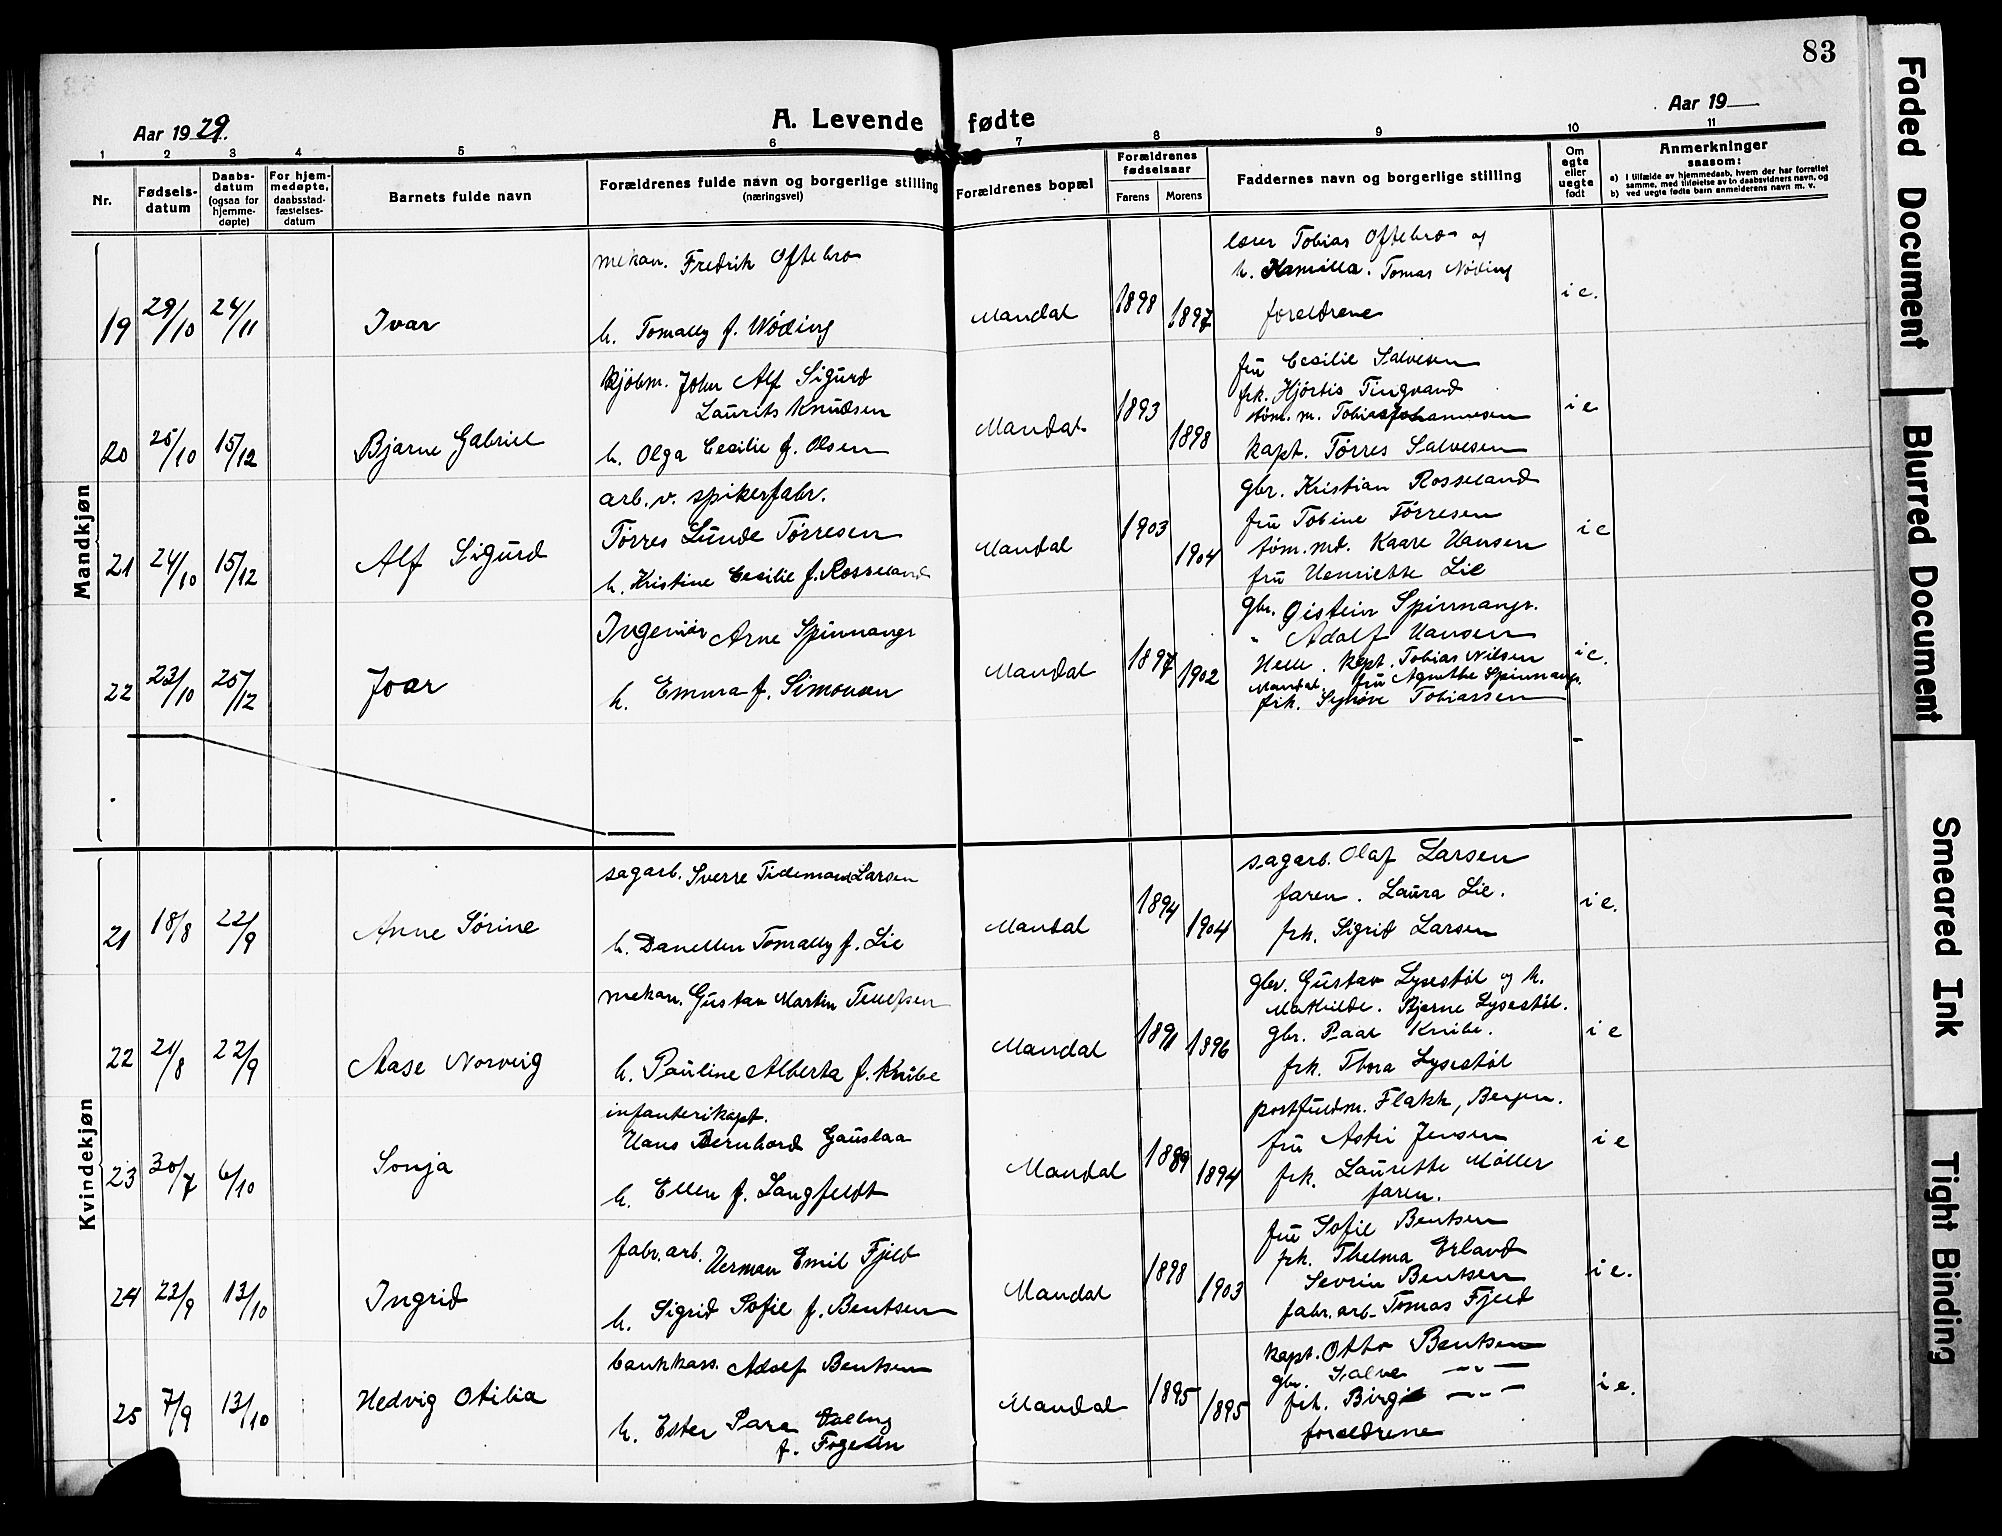 83
Aar 1929.
A. Levende fødte
Aar 19
1 2 3 4 5 6 7 8 9 10 11
Nr.
Fødsels-
datum
Daabs-
datum
(ogsaa for
hjemme-
døpte)
For hjem-
medøpte,
daabsstad-
fæstelses-
datum
Barnets fulde navn
Forældrenes fulde navn og borgerlige stilling
(næringsvei)
Forældrenes bopæl
Forældrenes
fødselsaar
Farens Morens
Faddernes navn og borgerlige stilling
Om
egte
eller
uegte
født
Anmerkninger
saasom:
a) I tilfælde av hjemmedaab, hvem der har forrettet
samme, med tilføielse av to daabsvidners navn, og
b) ved uegte fødte barn anmelderens navn m. v.
Mandkjøn
19 29/10 24/11 Ivar
mekan. Fredrik Oftebro
h. Tomally f. Nöding
Mandal 1898 1897
lærer Tobias Oftebro og
h. Kamilla. Tomas Nöding
foreldrene
i e.
20 25/10 15/12 Bjarne Gabriel
kjöbm. John Alf Sigurd
Laurits Knudsen
h. Olga Cecilie f. Olsen
Mandal 1893 1898
fru Cecilie Salvesen
frk. Hjördis Tingvand
töm. m. Tobias Johannesen
kapt. Tørres Salvesen
i e
21 24/10 15/12 Alf Sigurd
arb. v. spikerfabr.
Tørres Lunde Tørresen
h. Kristine Cecilie f. Rosseland
Mandal 1903 1904
gbr. Kristian Rosseland
fru Tobine Tørresen
töm. md. Kaare Hansen
fru Henriette Lie
i e
22 23/10 25/12 Joar
Ingeniör Arne Spinnangr
h. Emma f. Simonsen
Mandal 1897 1902
gbr. Öistein Spinnangr.
" Adolf Hansen
Helle. kapt. Tobias Nilsen
Mandal. fru Agnethe Spinnangr.
frk. Synöve Tobiassen
i e.
Kvindekjøn
21 18/8 22/9 Anne Sörine
sagarb. Sverre Tidemand Larsen
h. Danellen Tomally f. Lie
Mandal 1894 1904
sagarb. Olaf Larsen
faren. Laura Lie.
frk. Sigrid Larsen
i e.
22 21/8 22/9 Aase Norveig
mekan. Gustav Martin Tellefsen
h. Pauline Alberta f. Knibe
Mandal 1891 1896
gbr. Gustav Lysestöl og h.
Mathilde. Bjarne Lysestöl.
gbr. Paal Knibe.
frk. Thora Lysestöl
i e
23 30/7 6/10 Sonja
infanterikapt.
Hans Bernhard Gauslaa
h. Ellen f. Langfeldt
Mandal 1889 1894
postfuldm. Flakk, Bergen.
fru Astri Jensen
frk. Laurette Møller
faren.
i e
24 22/9 13/10 Ingrid
fabr. arb. Herman Emil Fjeld
h. Sigrid Sofie f. Bentsen
Mandal 1898 1903
fru Sofie Bentsen
frk. Thelma Erland
Sevrin Bentsen
fabr. arb. Tomas Fjeld
i e.
25 7/9 13/10 Hedvig Otilia
bankkass. Adolf Bentsen
h. Ester Para
f. Fogedln
Mandal 1895 1895
kapt. Otto Bentsen
gbr. Salve — " —
frk. Birgit — " —
foreldrene
i e.
Faded Document
Blurred Document
Smeared Ink
Tight Binding